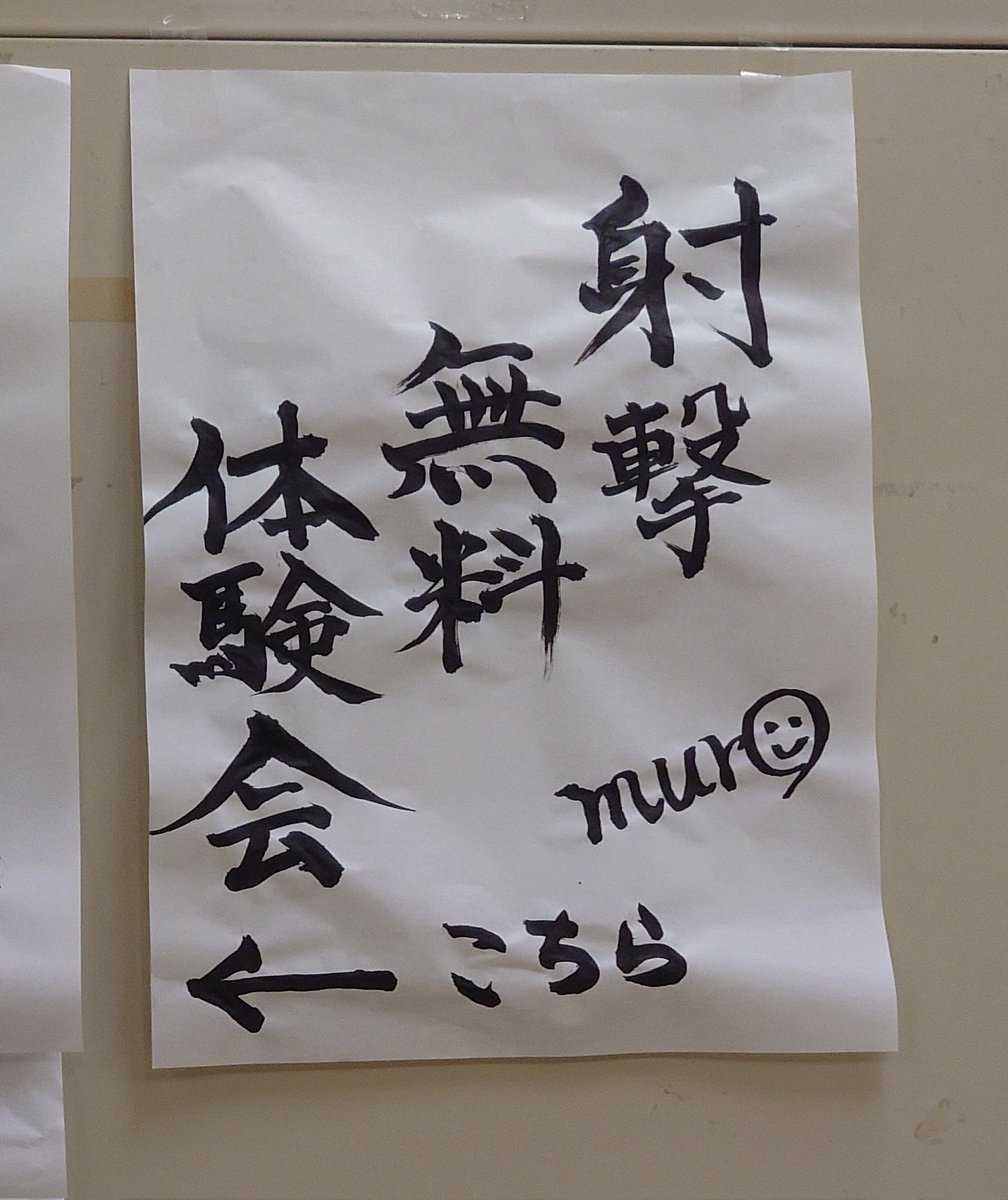 射撃
無料
体験会
muro
←こちら